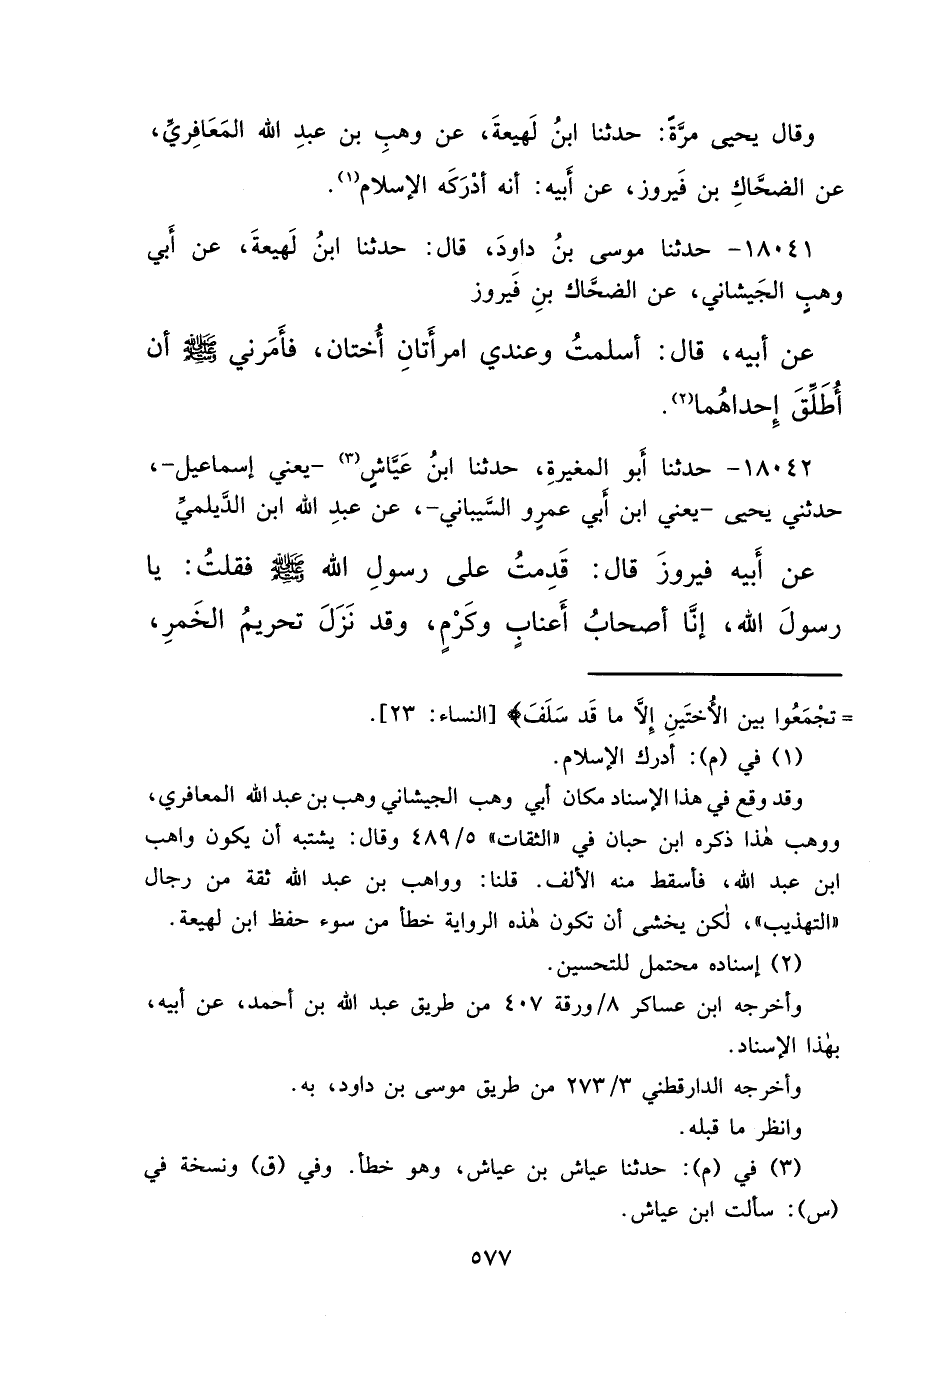 وقال يحيى مرَّةً: حدثنا ابنُ لَهيعةَ، عن وهبِ بن عبدِ الله المَعَافِريِّ،
عن الضحَّاكِ بن فَيروز، عن أَبيه: أنه أدْرَكَه الإسلام(١).
١٨٠٤١- حدثنا موسى بنُ داودَ، قال: حدثنا ابنُ لَهيعةَ، عن أَبي
وهبٍ الجَيشاني، عن الضحَّاك بنِ فَيروز
عن أبيه، قال: أسلمتُ وعندي امرأَتانِ أُختان، فأَمَرني ﷺ أن
أُطَلِّقَ إِحداهُما(٢).
١٨٠٤٢- حدثنا أَبو المغيرةِ، حدثنا ابنُ عَيَّاشٍ(٣) -يعني إسماعيل-،
حدثني يحيى -يعني ابن أَبي عمرٍو السَّيباني-، عن عبدِ الله ابن الدَّيلميِّ
عن أَبيه فيروزَ قال: قَدِمتُ على رسولِ الله ﷺ فقلتُ: يا
رسولَ الله، إنَّا أصحابُ أَعنابٍ وكَرْمٍ، وقد نَزَلَ تحريمُ الخَمرِ،
= تجْمَعُوا بين الأُختَينِ إِلَّا ما قَد سَلَفَ﴾ [النساء: ٢٣].
(١) في (م): أدرك الإسلام.
وقد وقع في هذا الإسناد مكان أبي وهب الجيشاني وهب بن عبد الله المعافري،
ووهب هٰذا ذكره ابن حبان في «الثقات» ٤٨٩/٥ وقال: يشتبه أن يكون واهب
ابن عبد الله، فأسقط منه الألف. قلنا: وواهب بن عبد الله ثقة من رجال
«التهذيب»، لٰكن يخشى أن تكون هٰذه الرواية خطأ من سوء حفظ ابن لهيعة.
(٢) إسناده محتمل للتحسين.
وأخرجه ابن عساكر ٨/ورقة ٤٠٧ من طريق عبد الله بن أحمد، عن أبيه،
بهٰذا الإسناد.
وأخرجه الدارقطني ٢٧٣/٣ من طريق موسى بن داود، به.
وانظر ما قبله.
(٣) في (م): حدثنا عياش بن عياش، وهو خطأ. وفي (ق) ونسخة في
(س): سألت ابن عياش.
٥٧٧